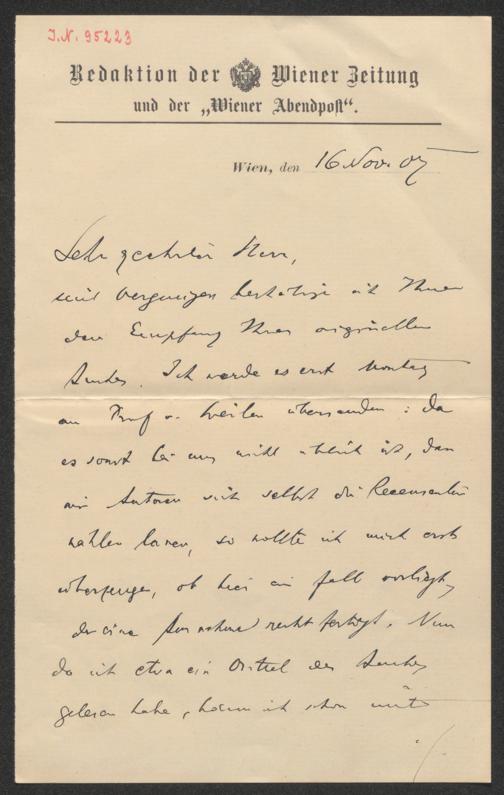 J.N. 95223
Redaktion der Wiener Zeitung
und der „Wiener Abendpost“.
Wien, den 16 Nov. 07
Sehr geehrter Herr,
mit Vergnügen bestätige ich Ihnen
den Empfang Ihres originellen
Buches. Ich werde es erst Montag
an Prof v. Weilen übersenden: da
es sonst bei uns nicht üblich ist, dass
wir Autoren sich selbst die Recensenten
wählen lassen, so wollte ich mich erst
überzeugen, ob hier ein Fall vorliegt,
der eine Ausnahme rechtfertigt. Nun
da ich etwa ein Drittel des Buches
gelesen habe, kann ich schon mit